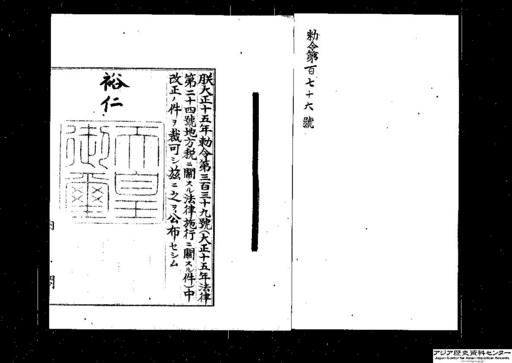 勅令第百七十六號
朕大正十五年勅令第三百三十九號(大正十五年法律
第二十四號地方税ニ關スル法律施行ニ關スル件)中
改正ノ件ヲ裁可シ茲ニ之ヲ公布セシム
裕仁
天皇
御璽
アジア歴史資料センター
Japan Center for Asian Historical Records